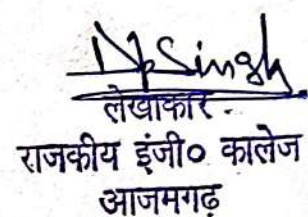 DpSingh
लेखाकार
राजकीय इंजी० कालेज
आजमगढ़